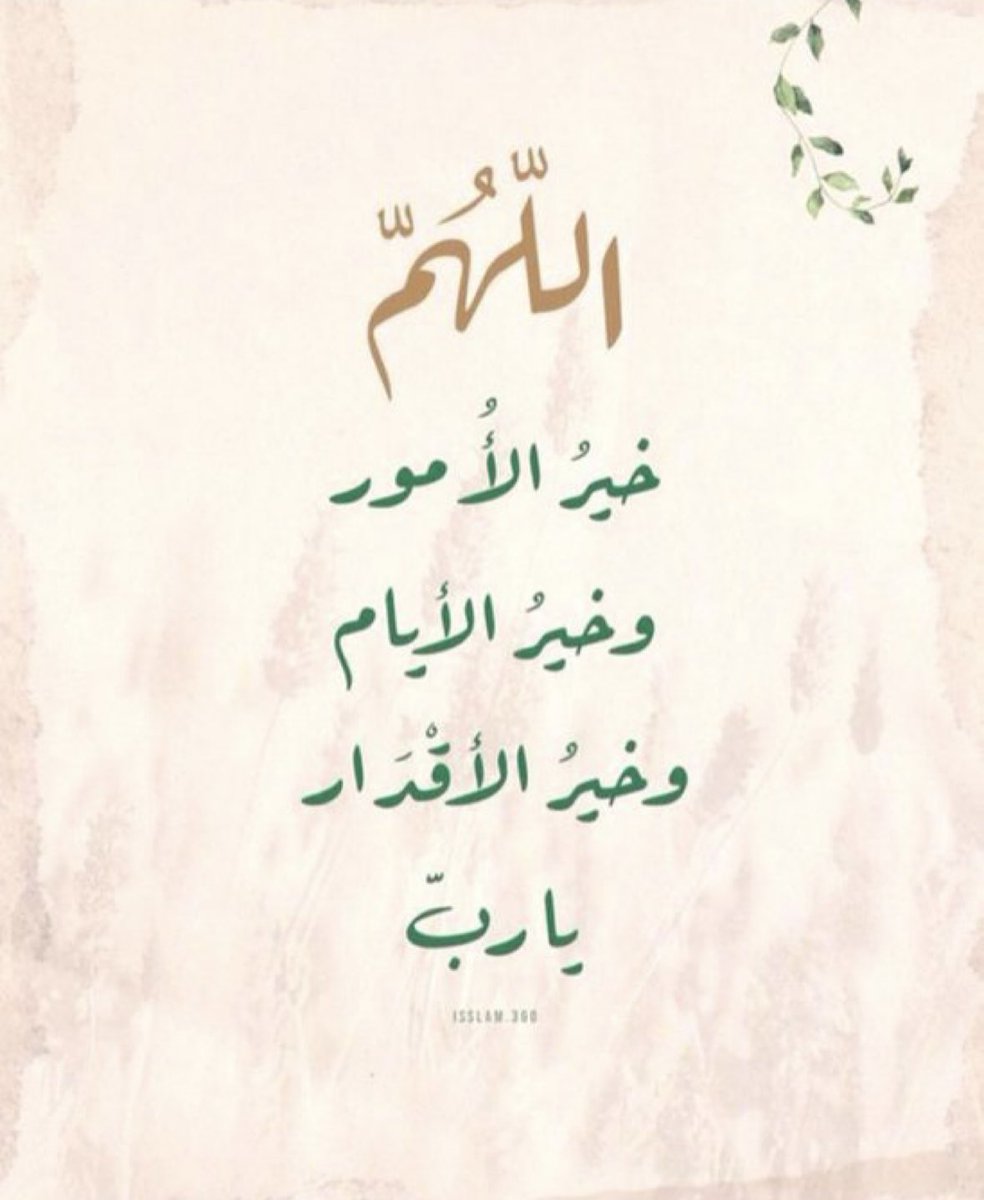 اللّهُمّ
خيرُ الأُمور
وخيرُ الأيام
وخيرُ الأقْدَار
يا ربّ
ISSLAM.360